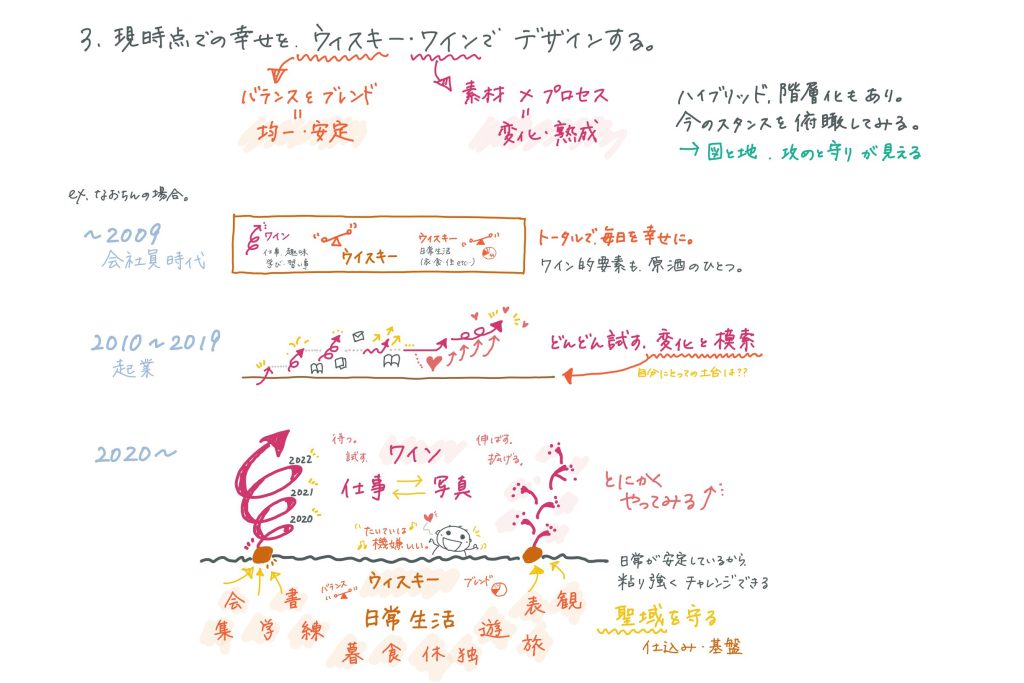 3. 現時点での幸せを、ウィスキー・ワインで デザインする。
バランスをブレンド
=
均一・安定
素材 × プロセス
=
変化・熟成
ハイブリッド、階層化もあり。
今のスタンスを俯瞰してみる。
→ 図と地、攻めと守りが見える
ex. なおちんの場合。
~2009
会社員時代
ワイン
仕事、趣味
学び・習い事
ウィスキー
ウィスキー
日常生活
(衣・食・住 etc…)
トータルで、毎日を幸せに。
ワイン的要素も、原酒のひとつ。
2010~2019
起業
どんどん試す、変化と模索
自分にとっての土台は??
2020~
2022
2021
2020
待つ。
試す。
ワイン
伸ばす。
拡げる。
仕事 写真
とにかく
やってみる
たいていは
機嫌いい。
日常が安定しているから、
粘り強くチャレンジできる
バランス
ウィスキー
ブレンド
会 書
集 学 練
日常生活
暮 食 休 独 遊
表 観
旅
聖域を守る
仕込み・基盤